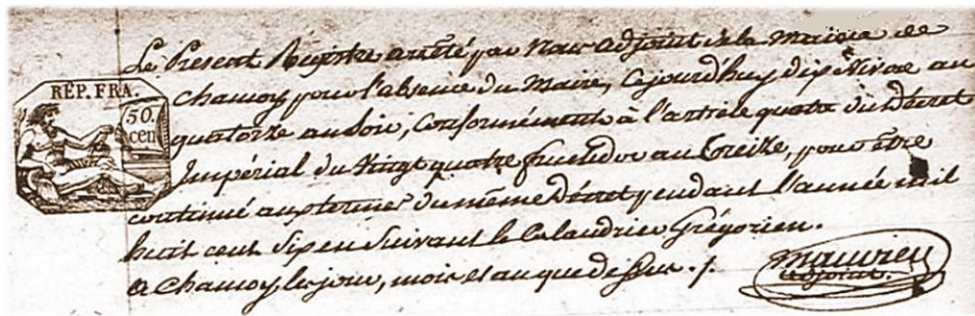 Le Present Registre arrêté par Nous adjoint de la Mairie de
RÉP. FRA.
Chamoy pour l'absence du Maire, Cejourd'huy dix Nivose an
50.
cen
quatorze au Soir, Conformément à l'article quatre du Décret
Impérial du Vingt quatre fructidor an Treize, pour être
continué aux termes du même Décret pendant l'année mil
huit cent Six en Suivant le Calendrier Grégorien.
a Chamoy, les jour, mois et an que dessus ./.
adjoint.